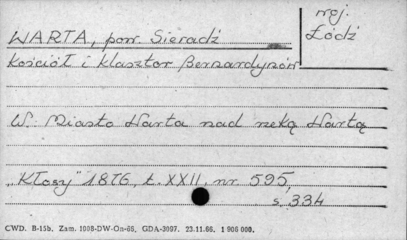 WARTA, pow. Sieradź
woj. Łódź
Kościół i klasztor Bernardynów
W. Miasto Warta nad rzeką Wartą
„Kłosy” 1876, t. XXII, nr 595,
s. 334
CWD. B-15b. Zam. 1098-DW-On-66. GDA-3097. 23.11.66. 1 906 000.